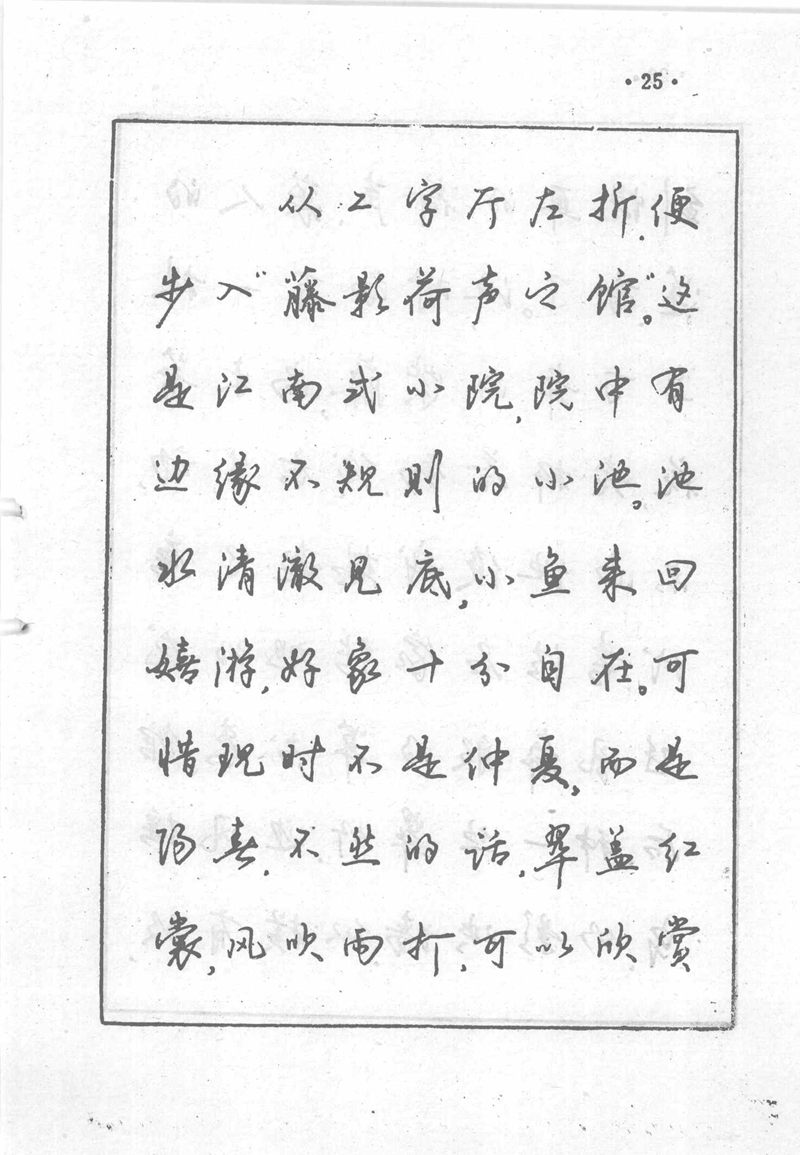 ·25·
从工字厅左折,便
步入“藤影荷声之馆”。这
是江南式小院,院中有
边缘不规则的小池。池
水清澈见底,小鱼来回
嬉游,好象十分自在。可
惜现时不是仲夏,而是
阳春,不然的话,翠盖红
裳,风吹雨打,可以欣赏